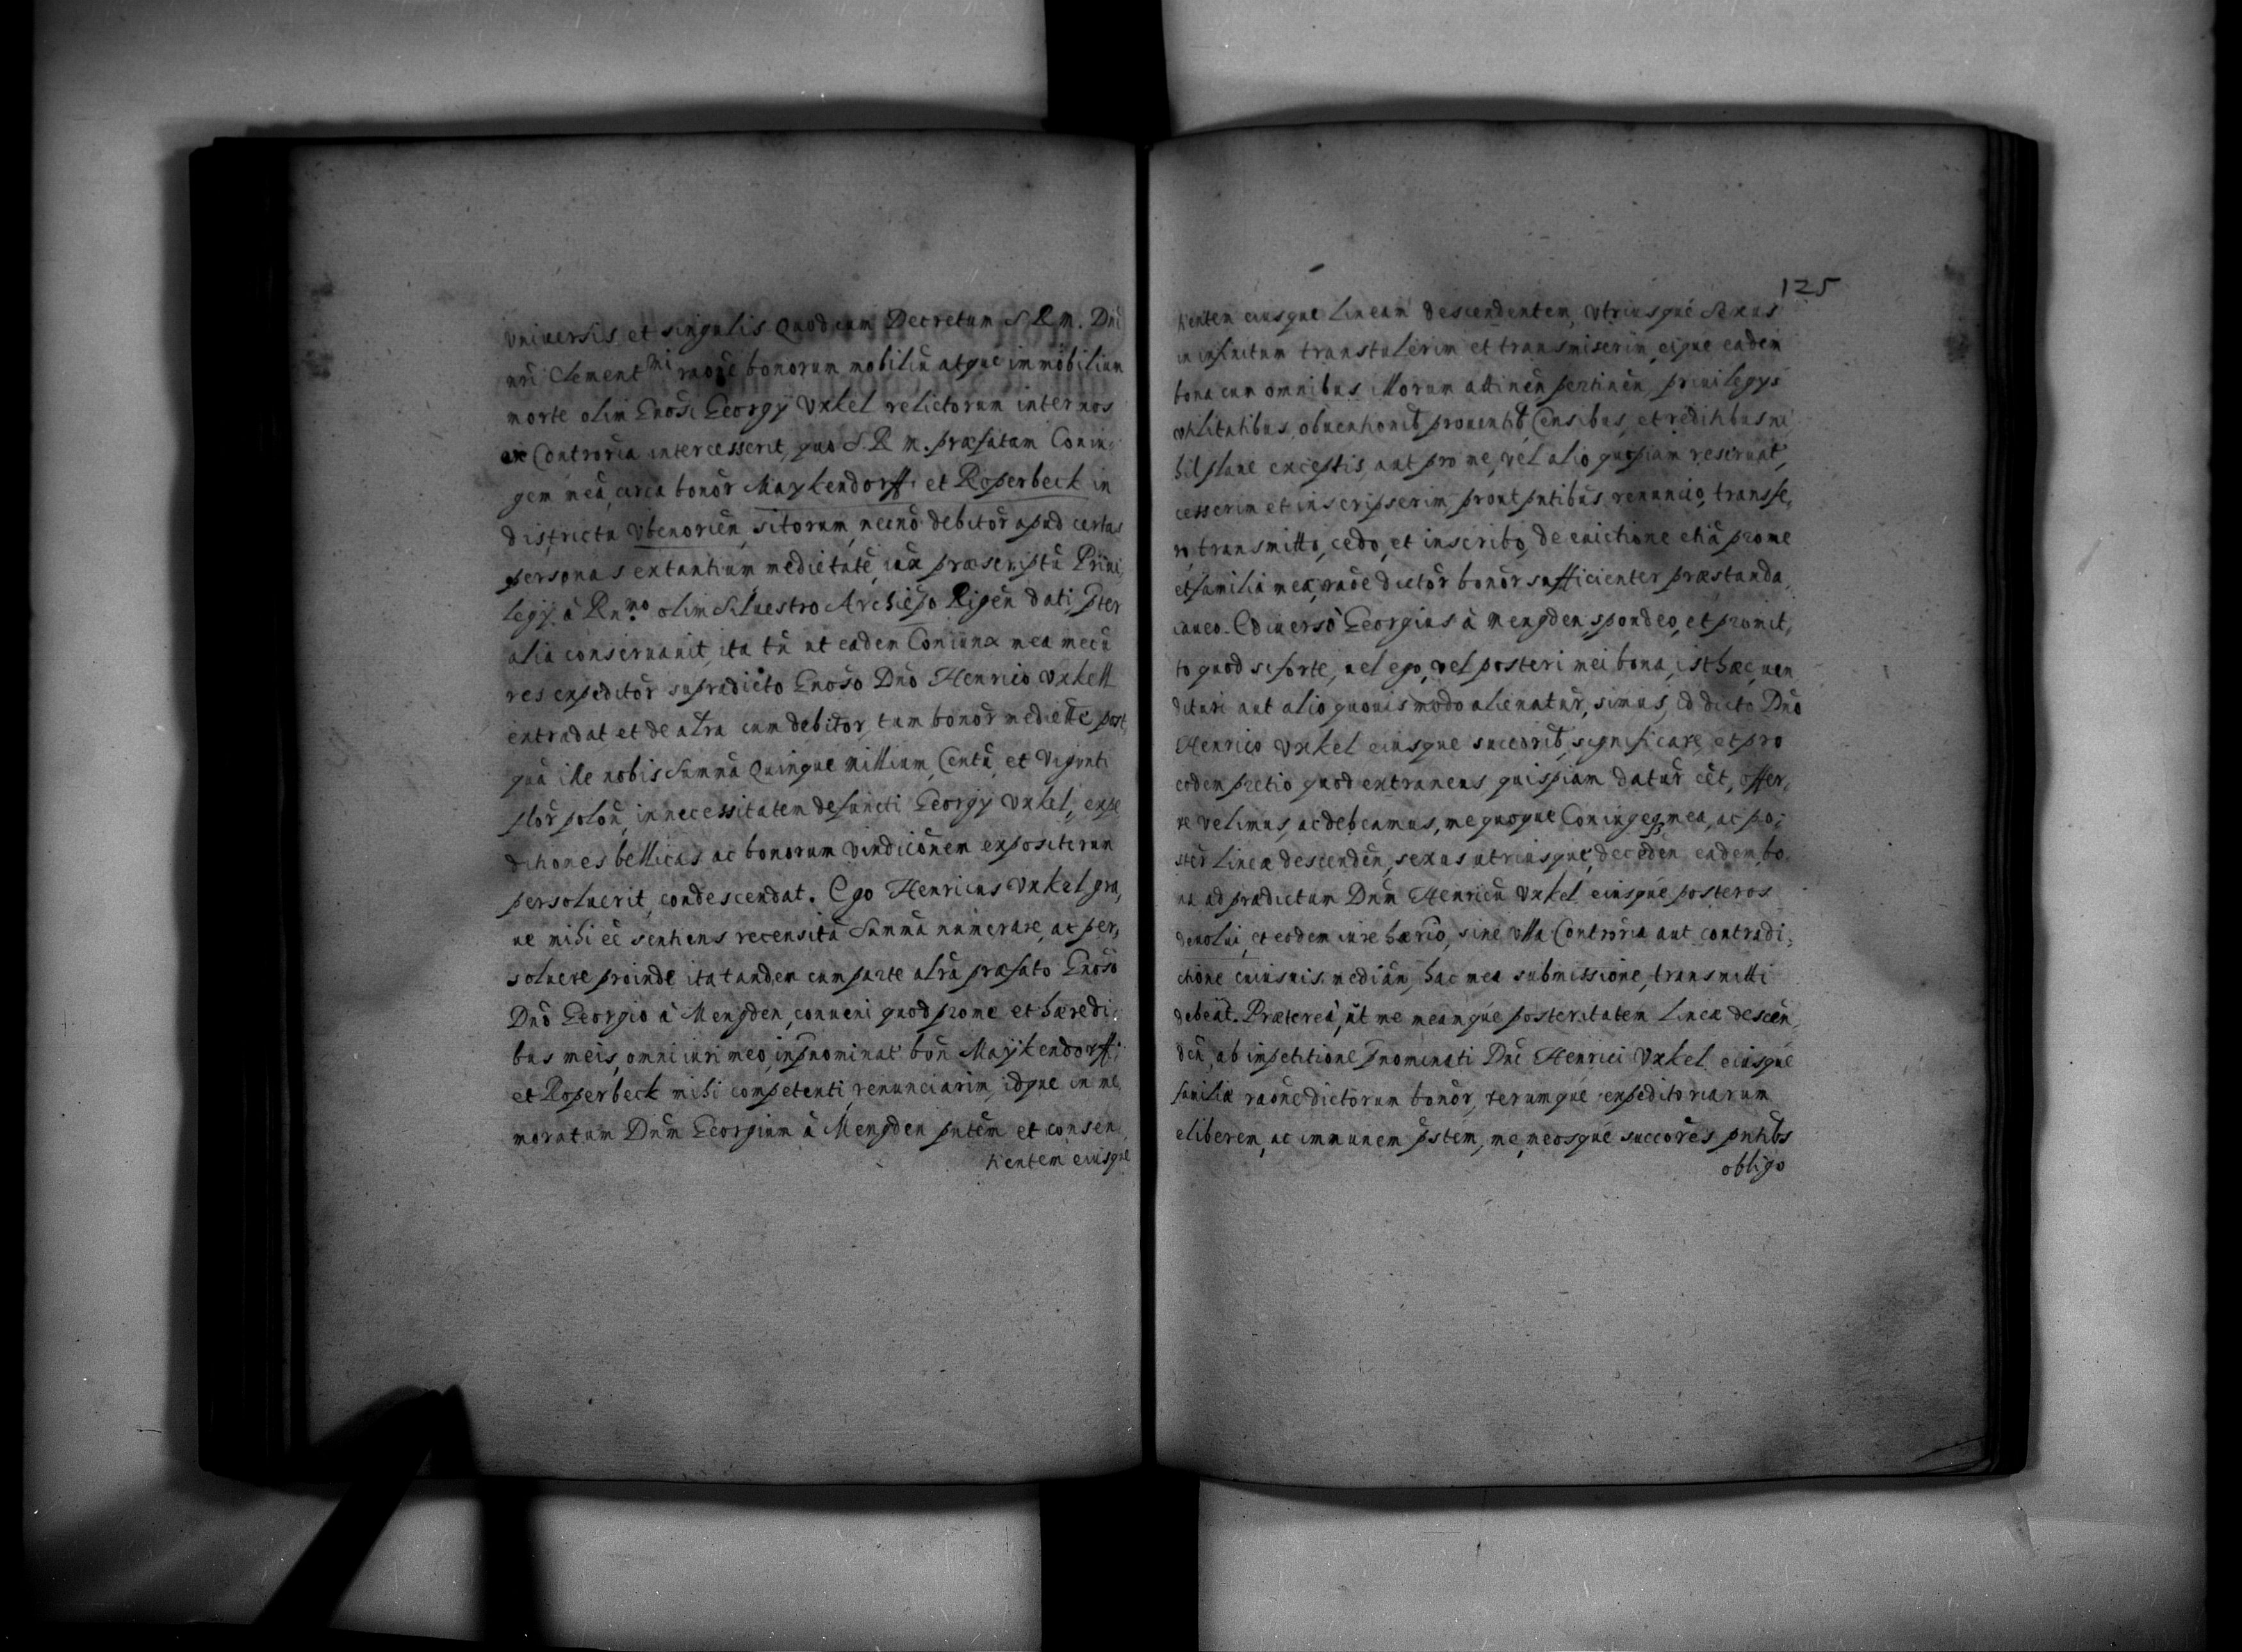 vniuersis et singulis Quod cum Decretum S R M. Dni
nri Clement mi raone bonorum mobiliũ atque immobilium
morte olim Gnosi Georgÿ Vxkel relictorum inter nos
ex Controuia intercesserit, quo S. R M. præfatam Coniu
gem meã, circa bonor̃ Maykendorff, et Roperbeck in
districtu Vbenorieñ, sitorum, necnõ debitor̃ apud certas
personas extantium medietatẽ, iux præscriptũ Priui,
legÿ à Rn.mo olim Siluestro Archiepo Rigeñ dati pter
alia conseruauit, ita tñ ut eadem Coniunx mea mecũ
res expeditor̃ supredicto Gnoso Dno Henrico Vxkell
extradat et de altra cum debitor̃, tum bonor̃ mediette post,
quã ille nobis Summã Quinque Millium, Centũ, et Viginti
flor̃ poloñ, in necessitatem defuncti Georgÿ Vxkel, expe
ditiones bellicas ac bonorum vindiciõnem expositerum
persoluerit, condescendat. Ego Henricus Vxkel gra,
ue mihi eẽ sentiens recensitã Summã numerare, ac per,
soluere proinde ita tandem cum parte altrã præfato Gnoso
Dno Georgio à Mengden, conueni quod pro me et hæredi,
bus meis, omni iuri meo, in pnominat bon Maÿkendorff,
et Roperbeck mihi competenti, renunciarim, idque in me,
moratum Dnm Georgium à Mengden pntem et consen,
tientem eiusque
125
tientem eiusque lineam descendentem, vtriusque Sexus
in infinitum transtulerim et transmiserim, eique eadem
bona cum omnibus illorum attineñ pertineñ, priuilegÿs
vtilitatibus, obuentionib, prouentib, Censibus, et reditibus ni
hil plane exceptis, aut pro me, vel alio quopiam reseruat,
cesserim et inscripserim, prout pntibus renuncio, transfe,
ro, transmitto, cedo, et inscribo, de euictione etiã pro me
et familia mea, raõe dictor̃ bonor̃ sufficienter præstanda,
caueo. E diuerso Georgius à Mengden spondeo, et promit,
to quod si forte, uel ego, vel posteri mei bona, isthæc, uen
dituri aut alio quouis modo alienatur̃, simus, id dicto Dno
Henrico Vxkel eiusque succorib, significare, et pro
eodem pretio quod extraneus quispiam datur̃ eẽt, offer,
re velimus, ac debeamus, me quoque Coniugeq mea, ac po,
ster̃ lineæ descendeñ, sexus utriusque, decedeñ, eadem bo,
na ad prædictum Dnm Henricũ Vxkel eiusque posteros
deuolui, et eodem iure hærio, sine vlla Controria aut contradi,
ctione cuiusuis, mediañ, hac mea submissione, transmitti
debeãt. Præterea, ut me meamque posteritatem lineæ descen,
deñ, ab impetitione pnominati Dni Henrici Vxkel eiusque
familiæ raone dictorum bonor̃, rerumque expeditoriarum
eliberem, ac immunem pstem, me, meosque succores pntibs
obligo